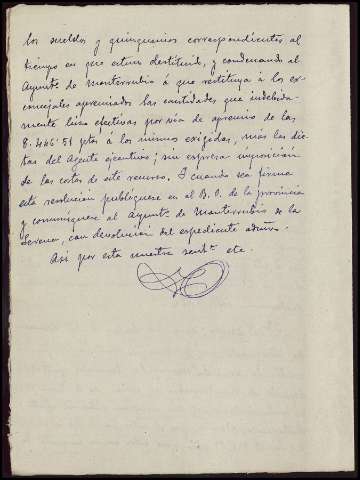 los sueldos y quinquenios correspondientes al
tiempo en que estuvo destituido, y condenando al
Ayuntº de Monterrubio á que restituya á los ex
concejales apremiados las cantidades que indebida-
mente hizo efectivas por vía de apremio de las
8.446'51 ptas á los mismos exigidas, más las die-
tas del Agente ejecutivo; sin expresa imposición
de las costas de este recurso. Y cuando sea firme
esta resolución publíquese en el B. O. de la provincia
y comuníquese al Ayuntº de Monterrubio de la
Serena, con devolución del expediente admvº.
Así por esta nuestra sentª etc.